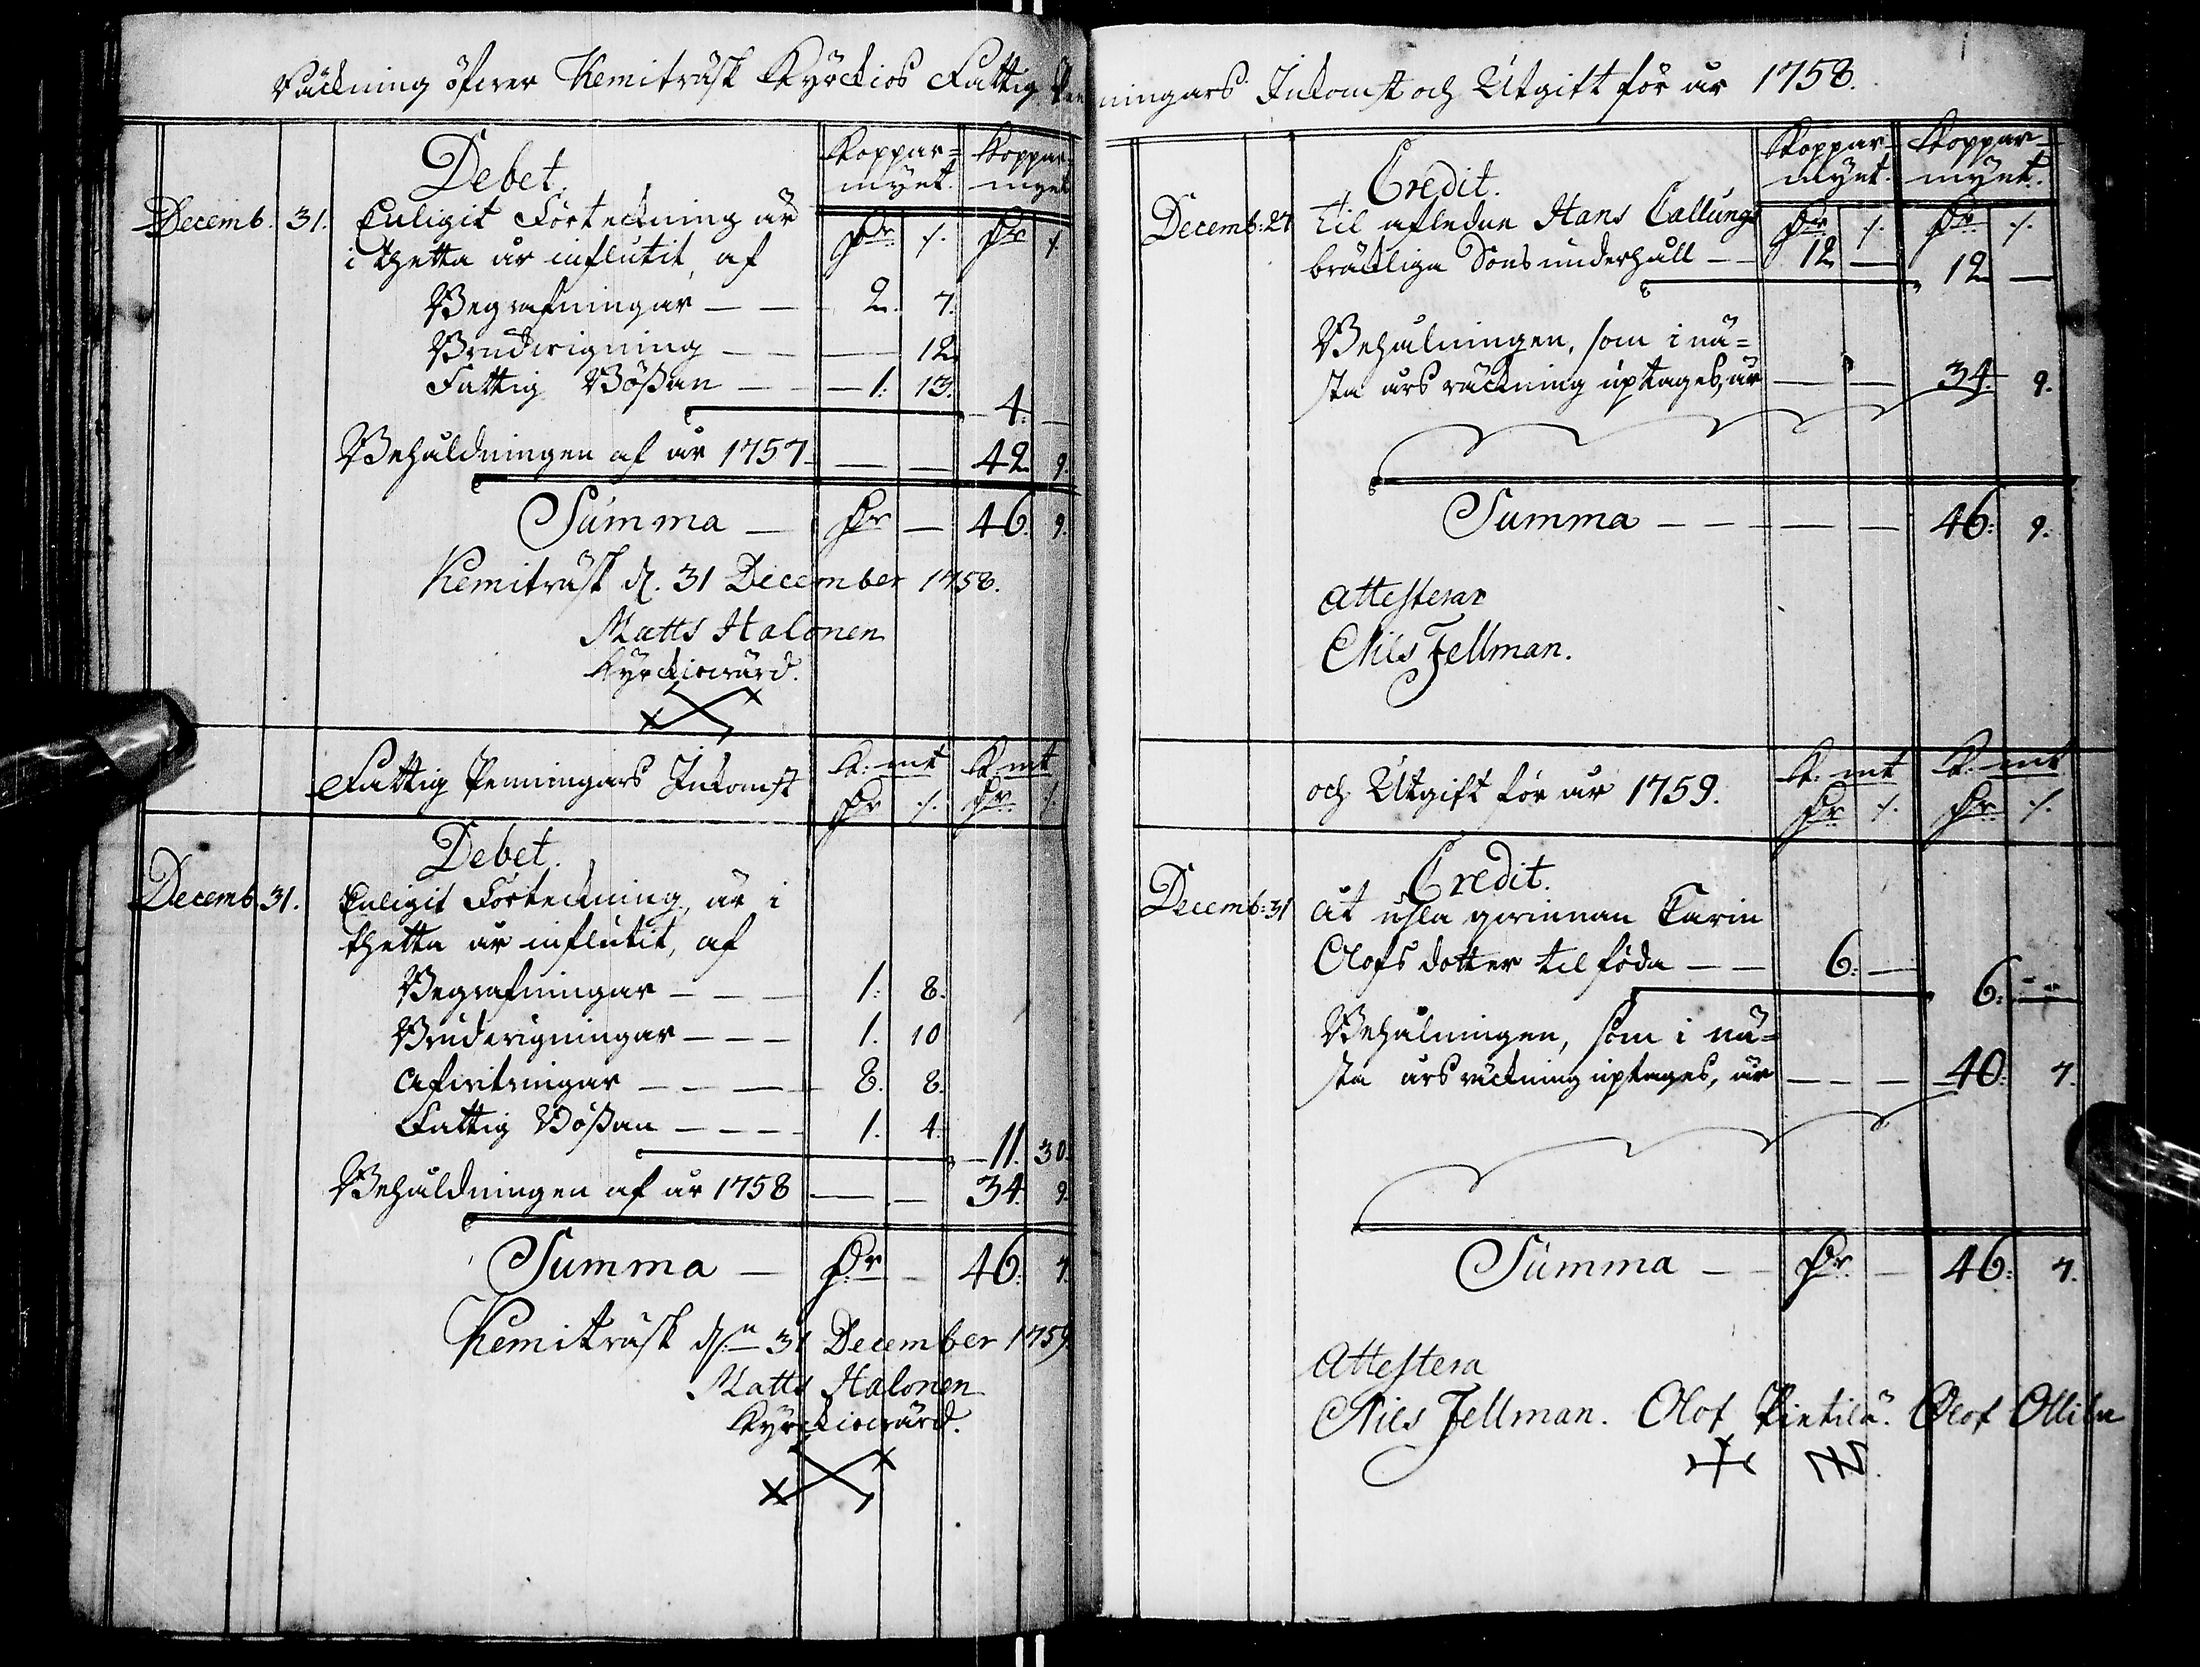 Räckning öfwer Kemiträsk Kyrckios Fattig Penningars Inkomst och Utgift för år 1758.
Debet.
Koppar= mynt. Koppar= mynt
Dr ./. Dr ./.
Decemb. 31. Enligit Förteckning är
i thetta år influtit, af
Begrafningar — — 2. 7.
Brudwigning — — — 12.
Fattig Bössan — — 1: 13.
4: —
Behåldningen af år 1757 — — 42 9.
Summa — Dr — 46. 9.
Kemiträsk d. 31 December 1758.
Matts Halonen
Kyrckiowärd.
Fattig Penningars Inkomst
K: mt K: mt
Dr ./. Dr ./.
Debet.
Decemb. 31. Enligit Förteckning, är i
thetta år influtit, af
Begrafningar — — — 1: 8.
Brudwigningar — — — 1. 10
Afwitringar — — — 8. 8.
Fattig Bössan — — — 1. 4.
11. 30.
Behåldningen af år 1758 — — 34. 9.
Summa — Dr — 46. 7.
Kemiträsk dn 31 December 1759.
Matts Halonen
Kyrckiowärd.
Credit.
Koppar= mynt. Koppar= mynt.
Dr ./. Dr ./.
Decemb: 27 Til afledne Hans Callungs
bräcklige Sons underhåll — — 12 — 12 —
Behålningen, som i nä=
sta års räckning uptages, är — — 34. 9.
Summa — — — — 46: 9.
Attesterar
Nils Fellman.
och Utgift för år 1759.
K: mt K: mt
Dr ./. Dr ./.
Credit.
Decemb: 31 Åt usla qwinnan Carin
Olofs dotter til föda — — 6: —
6: —
Behålningen, som i nä=
sta års räckning uptages, är — — — 40: 7.
Summa — — Dr. — 46: 7.
Attestera
Nils Fellman. Olof Pietilä. Olof Ollila